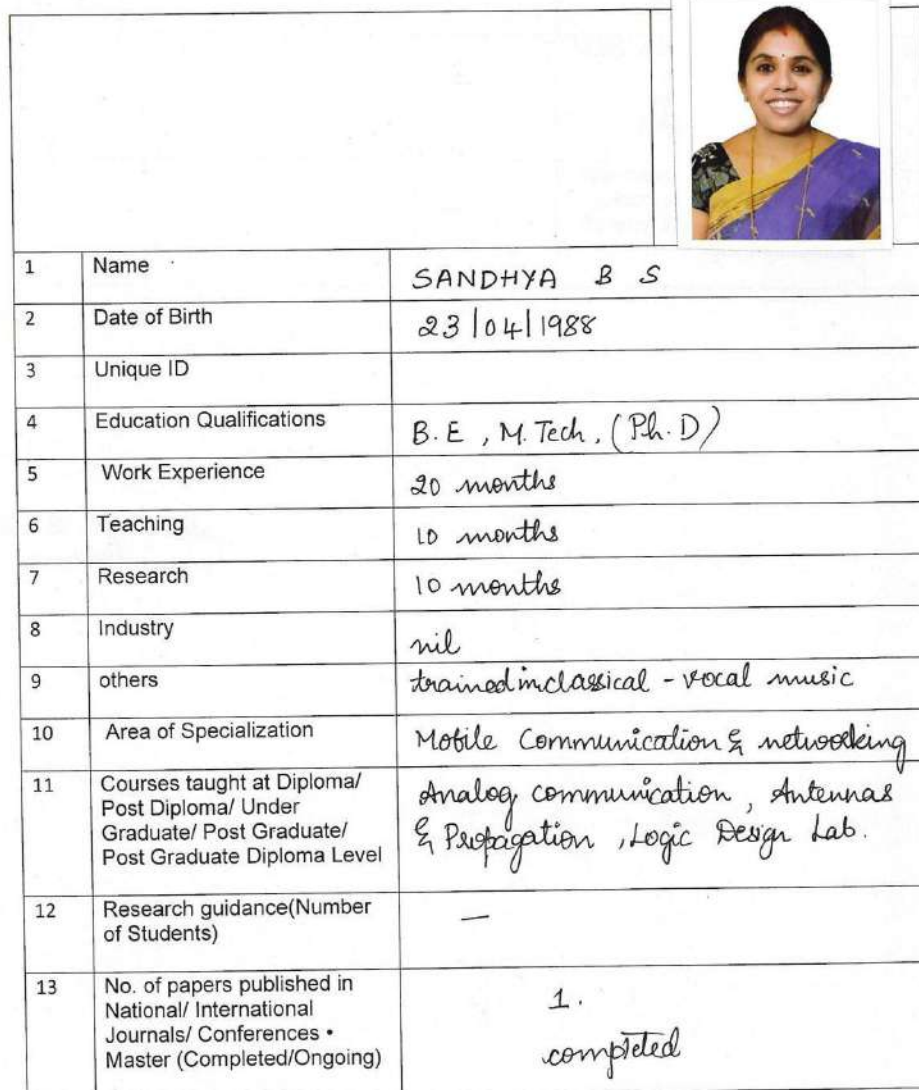 1 Name SANDHYA B S
2 Date of Birth 23/04/1988
3 Unique ID
4 Education Qualifications B.E, M.Tech, (Ph.D)
5 Work Experience 20 months
6 Teaching 10 months
7 Research 10 months
8 Industry nil
9 others trained in classical - vocal music
10 Area of Specialization Mobile Communication & networking
11 Courses taught at Diploma/ Analog communication, Antennas
Post Diploma/ Under & Propagation, Logic Design Lab.
Graduate/ Post Graduate/
Post Graduate Diploma Level
12 Research guidance(Number —
of Students)
13 No. of papers published in 1.
National/ International
Journals/ Conferences •
Master (Completed/Ongoing) completed